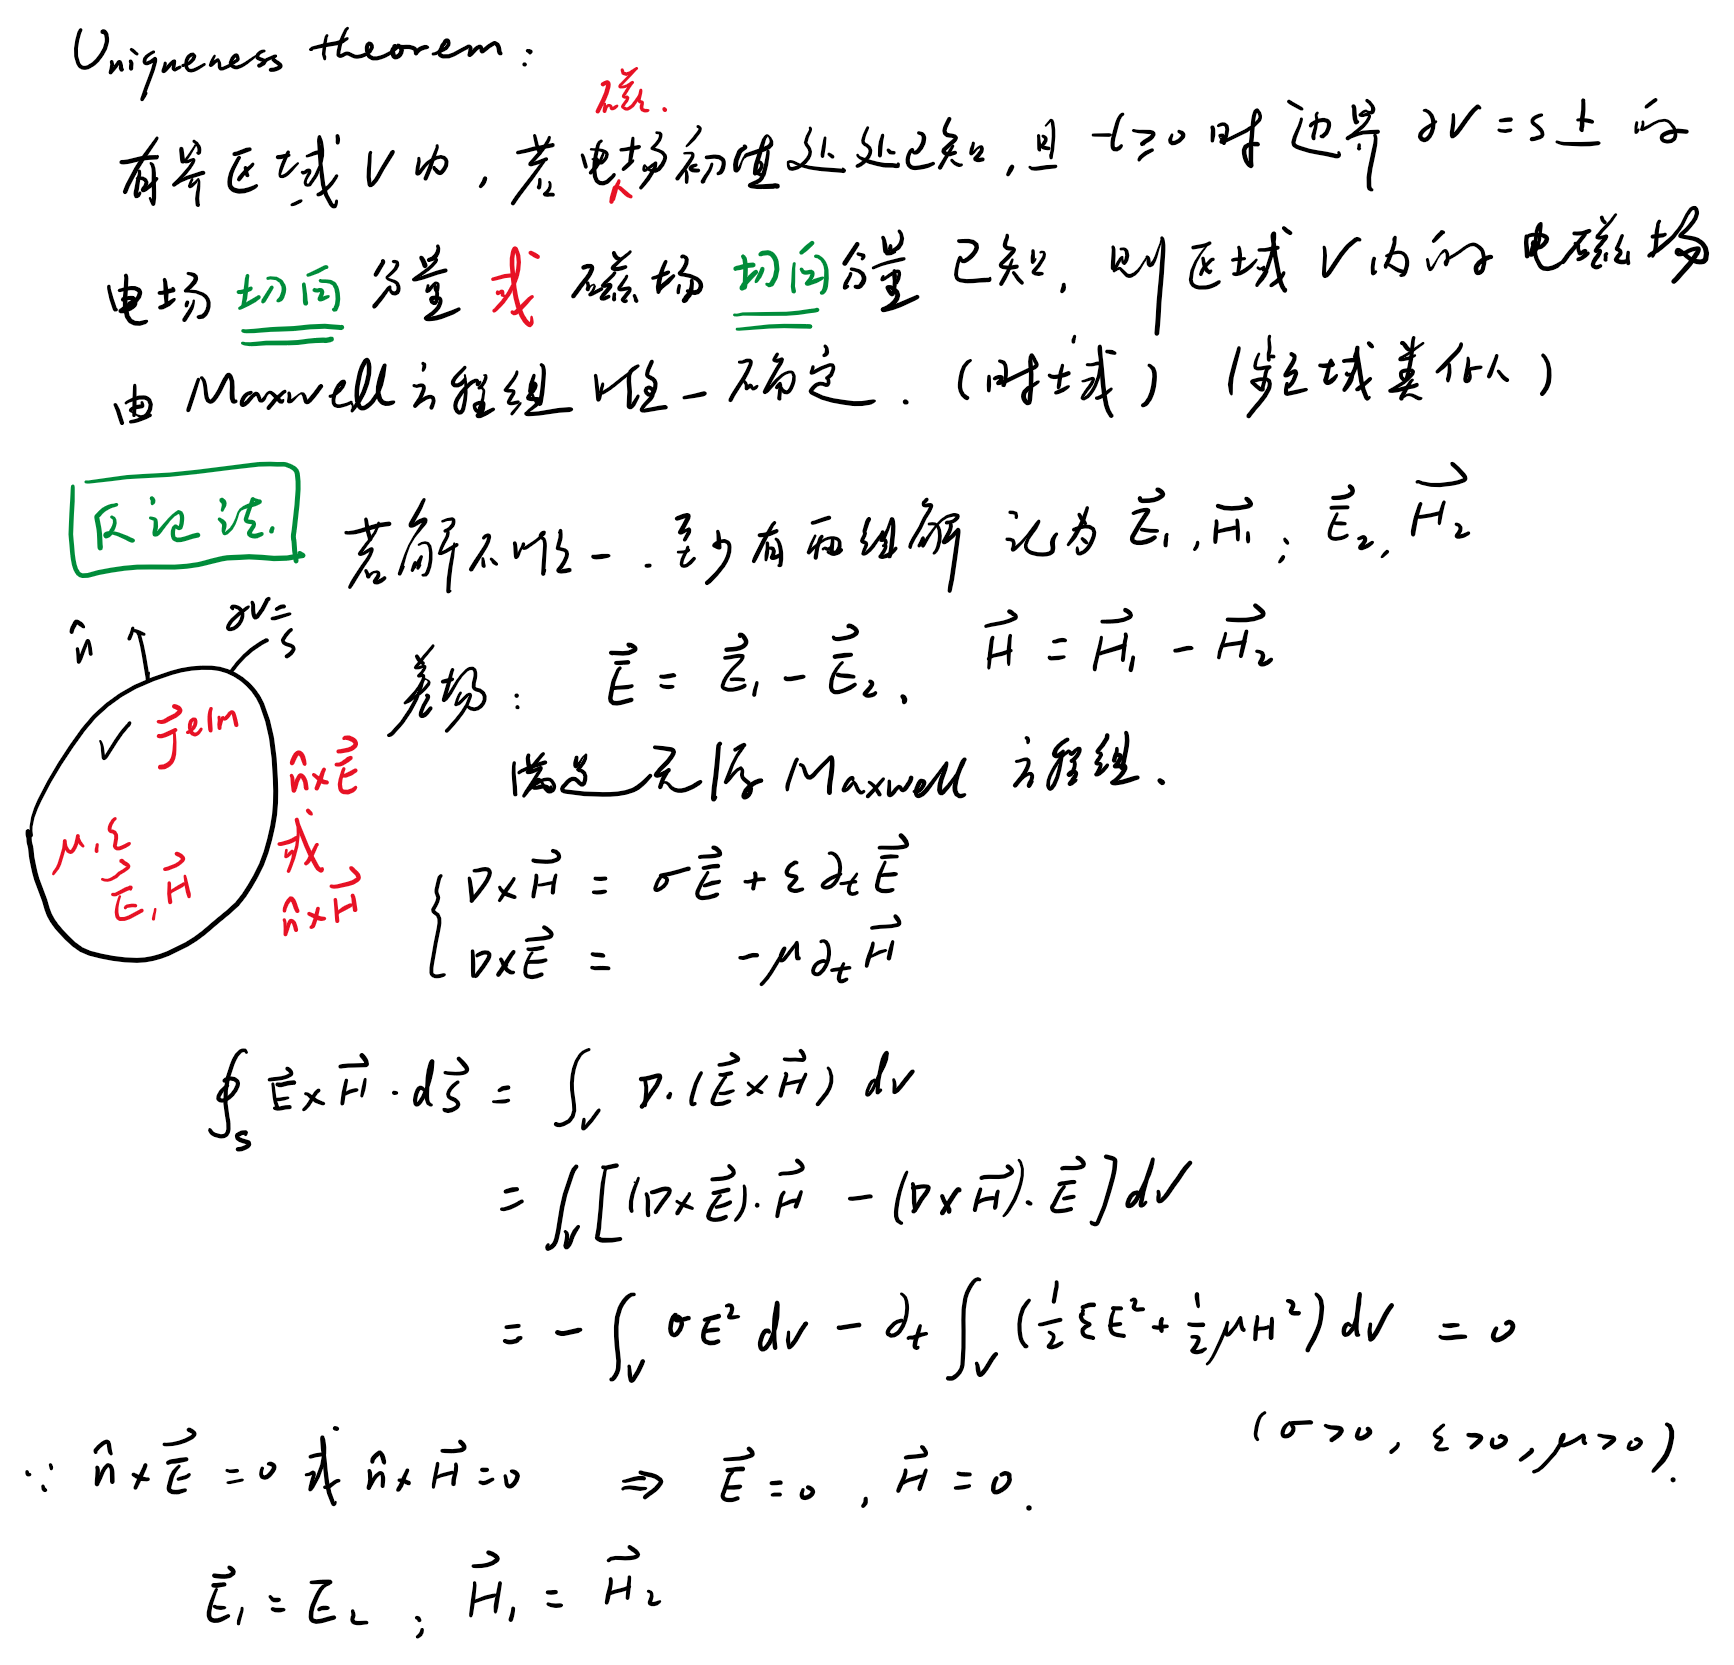 Uniqueness theorem:
有界区域 V 内, 若电磁场初值处处已知, 且 t≥0 时 边界 ∂V = S 上 的
电场 切向 分量 或 磁场 切向 分量 已知, 则区域 V 内的 电磁场
由 Maxwell 方程组 唯一确定. (时域) (频域类似)
反证法.
若解不唯一. 至少有两组解 记为 E⃗₁, H⃗₁; E⃗₂, H⃗₂
差场: E⃗ = E⃗₁ - E⃗₂, H⃗ = H⃗₁ - H⃗₂
满足无源 Maxwell 方程组.
n̂
∂V = S
V J⃗ e/m
μ, ε
E⃗, H⃗
n̂×E⃗
或
n̂×H⃗
∇×H⃗ = σE⃗ + ε∂ₜE⃗
∇×E⃗ = -μ∂ₜH⃗
∮_S E⃗×H⃗·dS⃗ = ∫_V ∇·(E⃗×H⃗) dv
= ∫_V [(∇×E⃗)·H⃗ - (∇×H⃗)·E⃗] dV
= -∫_V σE² dv - ∂ₜ∫_V (½εE² + ½μH²) dV = 0
(σ>0, ε>0, μ>0).
∵ n̂×E⃗ = 0 或 n̂×H⃗ = 0 ⇒ E⃗ = 0, H⃗ = 0.
E⃗₁ = E₂; H⃗₁ = H⃗₂